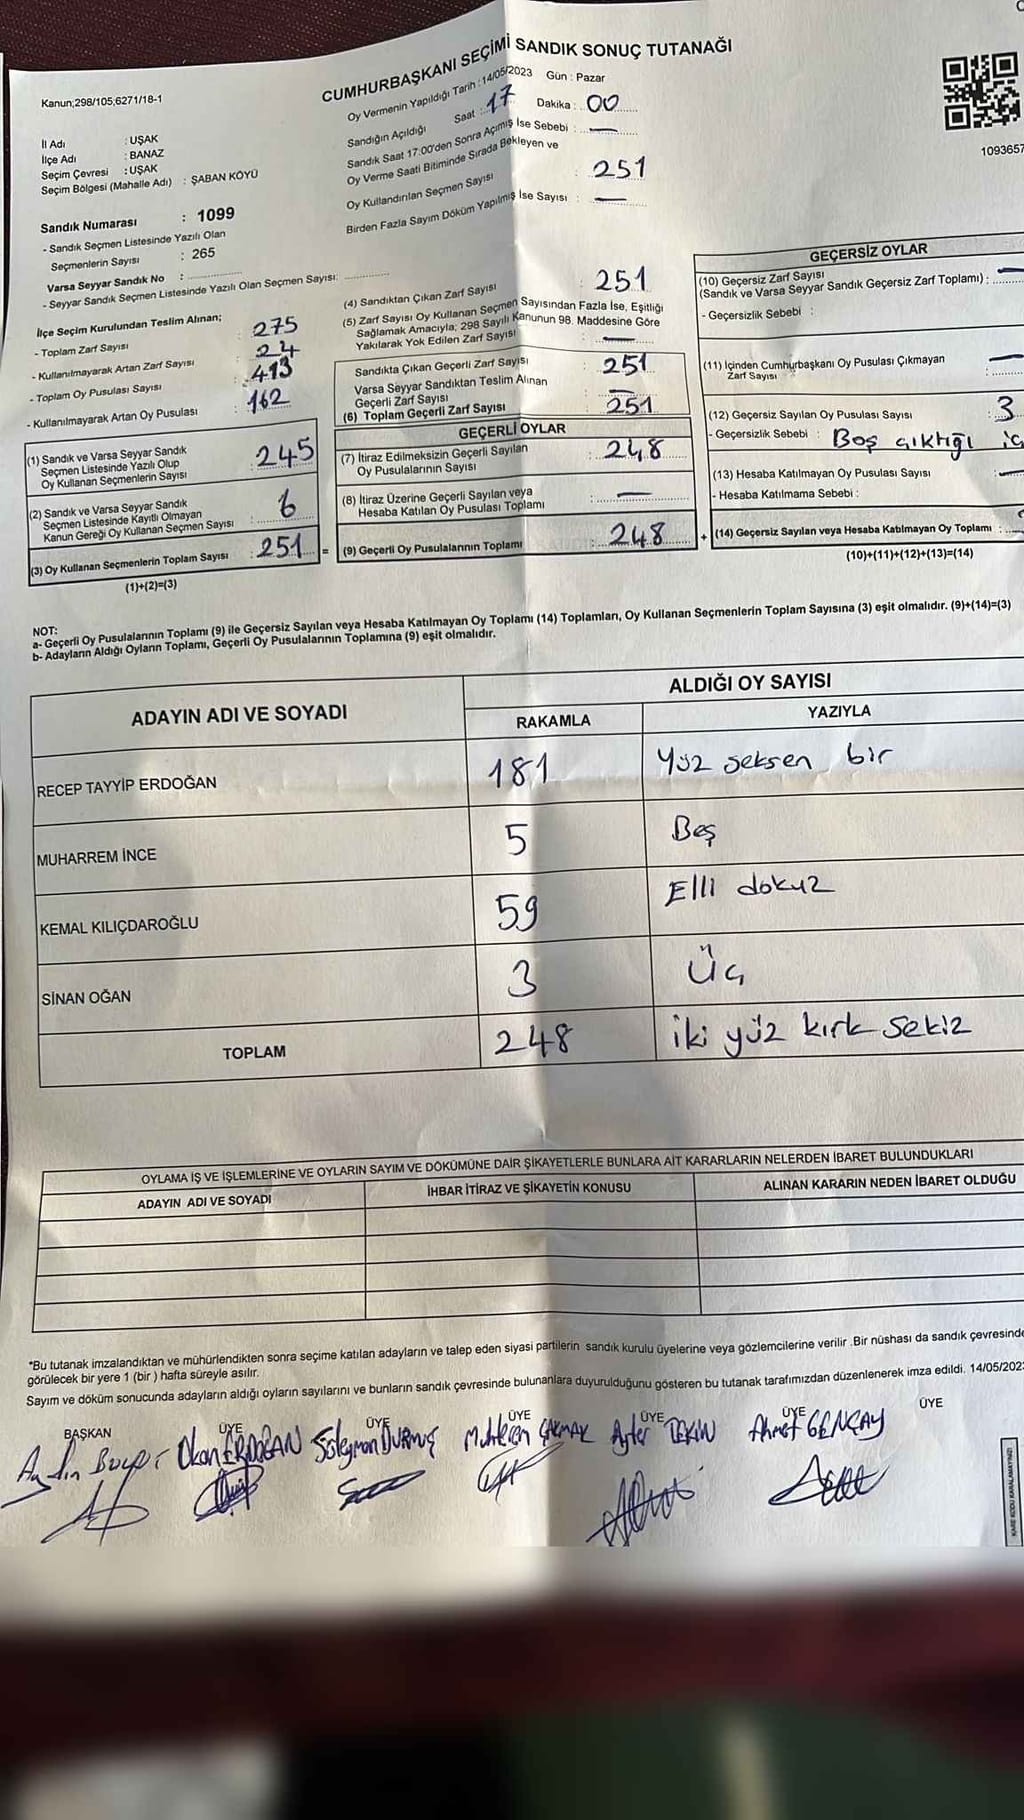 CUMHURBAŞKANI SEÇİMİ SANDIK SONUÇ TUTANAĞI
Kanun;298/105,6271/18-1
Oy Vermenin Yapıldığı Tarih : 14/05/2023 Gün : Pazar
Sandığın Açıldığı Saat : 17 Dakika : 00
Sandık Saat 17:00'den Sonra Açımış İse Sebebi : —
Oy Verme Saati Bitiminde Sırada Bekleyen ve
Oy Kullandırılan Seçmen Sayısı : 251
Birden Fazla Sayım Döküm Yapılmış İse Sayısı : —
1093657
İl Adı : UŞAK
İlçe Adı : BANAZ
Seçim Çevresi : UŞAK
Seçim Bölgesi (Mahalle Adı) : ŞABAN KÖYÜ
Sandık Numarası : 1099
- Sandık Seçmen Listesinde Yazılı Olan
Seçmenlerin Sayısı : 265
Varsa Seyyar Sandık No :
- Seyyar Sandık Seçmen Listesinde Yazılı Olan Seçmen Sayısı:
İlçe Seçim Kurulundan Teslim Alınan;
- Toplam Zarf Sayısı : 275
- Kullanılmayarak Artan Zarf Sayısı : 24
- Toplam Oy Pusulası Sayısı : 413
- Kullanılmayarak Artan Oy Pusulası : 162
(1) Sandık ve Varsa Seyyar Sandık
Seçmen Listesinde Yazılı Olup
Oy Kullanan Seçmenlerin Sayısı : 245
(2) Sandık ve Varsa Seyyar Sandık
Seçmen Listesinde Kayıtlı Olmayan
Kanun Gereği Oy Kullanan Seçmen Sayısı : 6
(3) Oy Kullanan Seçmenlerin Toplam Sayısı : 251 =
(1)+(2)=(3)
(4) Sandıktan Çıkan Zarf Sayısı : 251
(5) Zarf Sayısı Oy Kullanan Seçmen Sayısından Fazla İse, Eşitliği
Sağlamak Amacıyla; 298 Sayılı Kanunun 98. Maddesine Göre
Yakılarak Yok Edilen Zarf Sayısı : —
Sandıkta Çıkan Geçerli Zarf Sayısı : 251
Varsa Seyyar Sandıktan Teslim Alınan
Geçerli Zarf Sayısı : —
(6) Toplam Geçerli Zarf Sayısı : 251
GEÇERLİ OYLAR
(7) İtiraz Edilmeksizin Geçerli Sayılan
Oy Pusulalarının Sayısı : 248
(8) İtiraz Üzerine Geçerli Sayılan veya
Hesaba Katılan Oy Pusulası Toplamı : —
(9) Geçerli Oy Pusulalarının Toplamı : 248 +
GEÇERSİZ OYLAR
(10) Geçersiz Zarf Sayısı
(Sandık ve Varsa Seyyar Sandık Geçersiz Zarf Toplamı) : —
- Geçersizlik Sebebi :
(11) İçinden Cumhurbaşkanı Oy Pusulası Çıkmayan
Zarf Sayısı : —
(12) Geçersiz Sayılan Oy Pusulası Sayısı : 3
- Geçersizlik Sebebi : Boş çıktığı iç
(13) Hesaba Katılmayan Oy Pusulası Sayısı : —
- Hesaba Katılmama Sebebi :
(14) Geçersiz Sayılan veya Hesaba Katılmayan Oy Toplamı :
(10)+(11)+(12)+(13)=(14)
NOT:
a- Geçerli Oy Pusulalarının Toplamı (9) ile Geçersiz Sayılan veya Hesaba Katılmayan Oy Toplamı (14) Toplamları, Oy Kullanan Seçmenlerin Toplam Sayısına (3) eşit olmalıdır. (9)+(14)=(3)
b- Adayların Aldığı Oyların Toplamı, Geçerli Oy Pusulalarının Toplamına (9) eşit olmalıdır.
ADAYIN ADI VE SOYADI
ALDIĞI OY SAYISI
RAKAMLA YAZIYLA
RECEP TAYYİP ERDOĞAN 181 Yüz seksen bir
MUHARREM İNCE 5 Beş
KEMAL KILIÇDAROĞLU 59 Elli dokuz
SİNAN OĞAN 3 Üç
TOPLAM 248 iki yüz kırk sekiz
OYLAMA İŞ VE İŞLEMLERİNE VE OYLARIN SAYIM VE DÖKÜMÜNE DAİR ŞİKAYETLERLE BUNLARA AİT KARARLARIN NELERDEN İBARET BULUNDUKLARI
ADAYIN ADI VE SOYADI İHBAR İTİRAZ VE ŞİKAYETİN KONUSU ALINAN KARARIN NEDEN İBARET OLDUĞU
*Bu tutanak imzalandıktan ve mühürlendikten sonra seçime katılan adayların ve talep eden siyasi partilerin sandık kurulu üyelerine veya gözlemcilerine verilir .Bir nüshası da sandık çevresinde
görülecek bir yere 1 (bir ) hafta süreyle asılır.
Sayım ve döküm sonucunda adayların aldığı oyların sayılarını ve bunların sandık çevresinde bulunanlara duyurulduğunu gösteren bu tutanak tarafımızdan düzenlenerek imza edildi. 14/05/202
BAŞKAN ÜYE ÜYE ÜYE ÜYE ÜYE ÜYE
Aydın Okan ERDOĞAN Süleyman DURMUŞ ÇAKMAK TEKİN Ahmet GENÇAY
KARE KODU KARALAMAYINIZ!